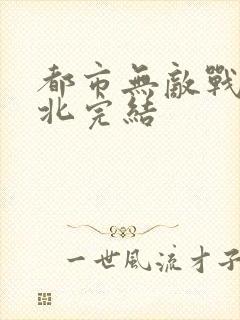 都市無敵戰
北完結
一世風流才子